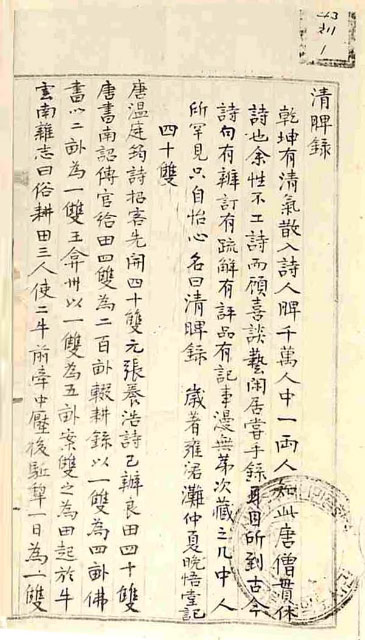 清脾錄
乾坤有清氣散入詩人脾千萬人中一兩人知此唐僧貫休
詩也余性不工詩而顧喜談藝閑居嘗手錄耳目所到古今
詩句有辨訂有疏解有評品有記事漫無第次藏之几中人
所罕見只自怡心名曰清脾錄 歲著雍涒灘仲夏晩悟堂記
四十雙
唐溫庭筠詩招客先開四十雙元張養浩詩已辦良田四十雙
唐書南詔傳官給田四雙為二百畝輟耕錄以一雙為四畝佛
書以二畝為一雙王弇州以一雙為五畝案雙之為田起於牛
雲南雜志曰俗耕田三人使二牛前牽中壓後驅犂一日為一雙